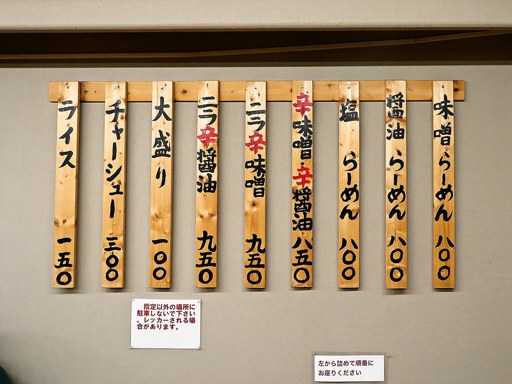 味噌らーめん 八〇〇
醤油らーめん 八〇〇
塩らーめん 八〇〇
辛味噌・辛醤油 八五〇
ニラ辛味噌 九五〇
ニラ辛醤油 九五〇
大盛り 一〇〇
チャーシュー 三〇〇
ライス 一五〇
指定以外の場所に
駐車しないで下さい
。レッカーされる場
合があります。
左から詰めて順番に
お座りください